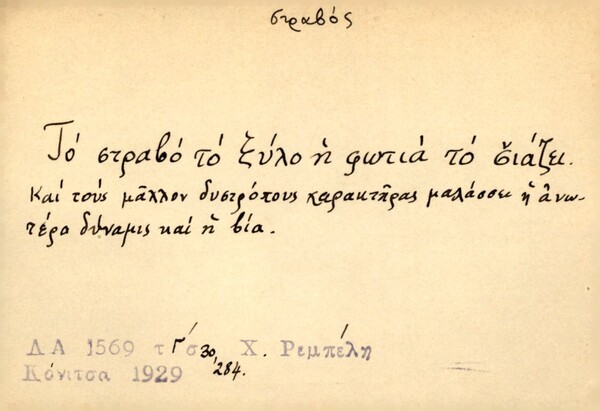 στραβός
Τό στραβό τό ξύλο ἡ φωτιά τό σιάζει.
Καί τούς μᾶλλον δυστρόπους χαρακτῆρας μαλάσσει ἡ ἀνω-
τέρα δύναμις καί ἡ βία.
ΛΑ 1569 τ Γ σ 30, Χ. Ρεμπέλη
Κόνιτσα 1929 284.